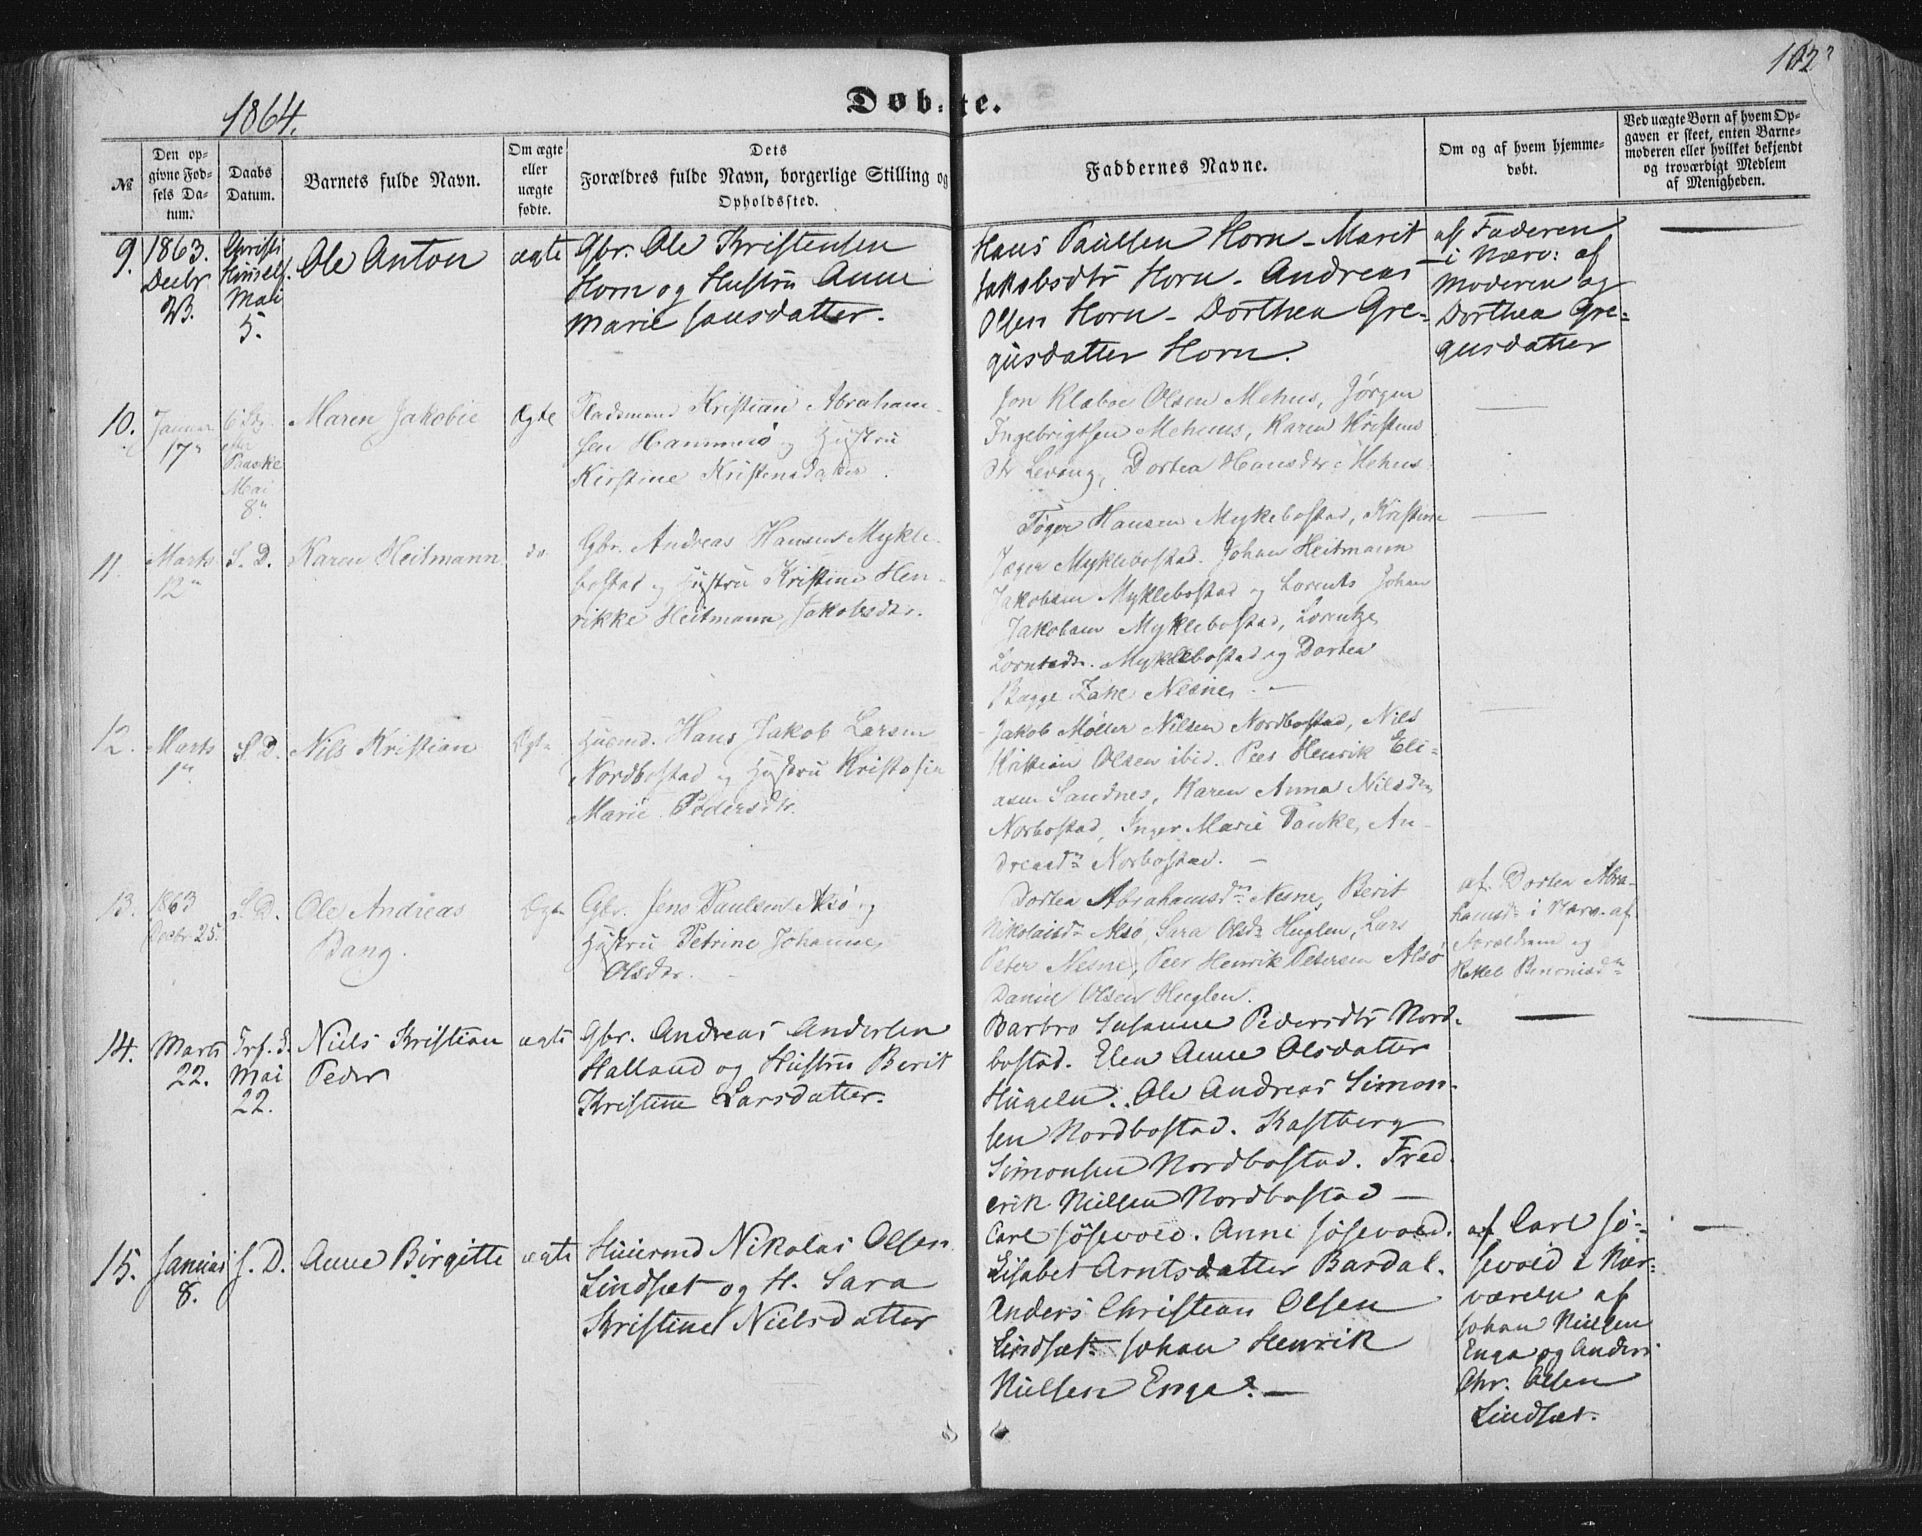 1864.
Døb-te.
102
№
Den opgivne Fødsels Datum.
Daabs Datum.
Barnets fulde Navn.
Om ægte eller uægte fødte.
Dets Forældres fulde Navn, borgerlige Stilling og Opholdssted.
Faddernes Navne.
Om og af hvem hjemmedøbt.
Ved uægte Børn af hvem Opgaven er skeet, enten Barnemoderen eller hvilket bekjendt og troværdigt Medlem af Menigheden.
9.
1863.
Decbr
23.
Christi
Himmelf.
Mai
5.
Ole Anton
ægte
Gbr. Ole Kristensen
Horn og Hustru Anne
Marie Jansdatter.
Hans Paulsen Horn - Marit
Jakobsdtr Horn - Andreas
Olsen Horn - Dorthea Gre-
gusdatter Horn.
af Faderen
i Nærv: af
Moderen og
Dorthea Gre-
gusdatter
10.
Januar
17
6 S.
Paaske
Mai
8
Maren Jakobie
Ægte
Pladsmand Kristian Abraham-
sen Hammerø og Hustru
Kirstine Kristensdatter.
Jon Klæboe Olsen Mehus, Jørgen
Ingebrigtsen Mehuus, Karen Kristens
dtr Levang, Dortea Hansdtr Mehus.
11.
Marts
12
S. D.
Karen Heitmann
do
Gbr. Andreas Hansen Mykle-
bostad og Hustru Kristine Hen-
rikke Heitmann, Jakobsdtr.
Tøger Hansen Myklebostad, Kristine
Jæger Myklebostad. Johan Heitmann
Jakobsen Myklebostad og Lorents Johan
Jakobsen Myklebostad, Lorentze
Lorntsdtr. Myklebostad og Dortea
Bagge Nesne. -
12.
Marts
1
S. D.
Nils Kristian
Ægte
Husmd. Hans Jakob Larsen
Nordbostad og Hustru Kristofin
Marie Pedersdtr.
Jakob Møller Nilsen Nordbostad, Nils
Kristian Olsen ibid. Peer Henrik Eli-
asen Sandnes, Karen Anna Nilsdtr
Norbostad, Inger Marie An-
dreasdtr Norbostad. -
13.
1863
Decbr 25.
S. D.
Ole Andreas
Bang.
Ægte
Gbr. Jens Paulsen Alsø og
Hustru Petrine Johanne
Olsdtr. -
Dortea Abrahamsdtr Nesne, Berit
Nikolaisdtr Alsø, Sara Olsdtr Huglen, Lars
Peter Nesne, Peer Henrik Petersen Alsø
Daniel Olsen Huglen.
af. Dortea Abra-
hamsdtr i Nærv. af
Forældrene og
Rakel Benonisdtr
14.
Marts
22.
Trf. S.
Mai
22.
Niels Kristian
Peder
ægte
Gbr. Andreas Andersen
Halland og Hustru Berit
Kristine Larsdatter.
Barbro Susanne Pedersdtr Nord-
bostad. Elen Anne Olsdatter
Hugeln. Ole Andreas Simon-
sen Nordbostad. Kastberg
Simonsen Nordbostad. Fred-
erik Nielsen Nordbostad -
15.
Januar
8.
S. D.
Anne Birgitte
ægte
Huusmd Nikolai Olsen
Lindset og H. Sara
Kristine Nielsdatter
Carl Jøsevold. Anne Jøsevold.
Lisabet Arntsdatter Bardal.
Anders Christian Olsen
Lindset. Johan Henrik
Nielsen Enga. -
af Carl Jø-
sevold i Nær-
værelse af
Johan Nielsen
Enga og Anders
Chr. Olsen
Lindset.